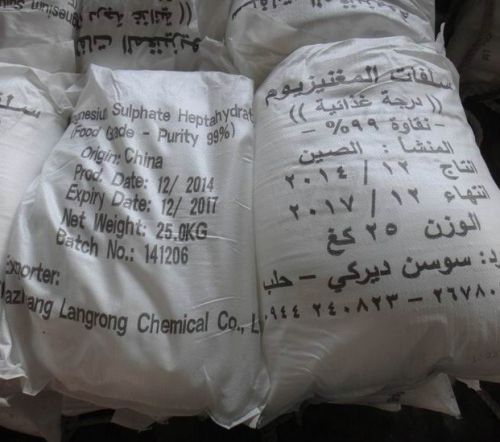 Magnesium Sulphate Heptahydrate
(Food Grade - Purity 99%)
Origin: China
Prod. Date: 12/ 2014
Expiry Date: 12/ 2017
Net Weight: 25.0KG
Batch No.: 141206
Exporter:
Langrong Chemical Co., L
سلفات المغنيزيوم
(( درجة غذائية ))
- نقاوة ٩٩% -
المنشأ: الصين
انتاج ١٢ / ٢٠١٤
انتهاء ١٢ / ٢٠١٧
الوزن ٢٥ كغ
رد: سوسن ديركي - حلب
٠٩٤٤ ٢٤٠٨٢٣ - ٢٦٧٨٠